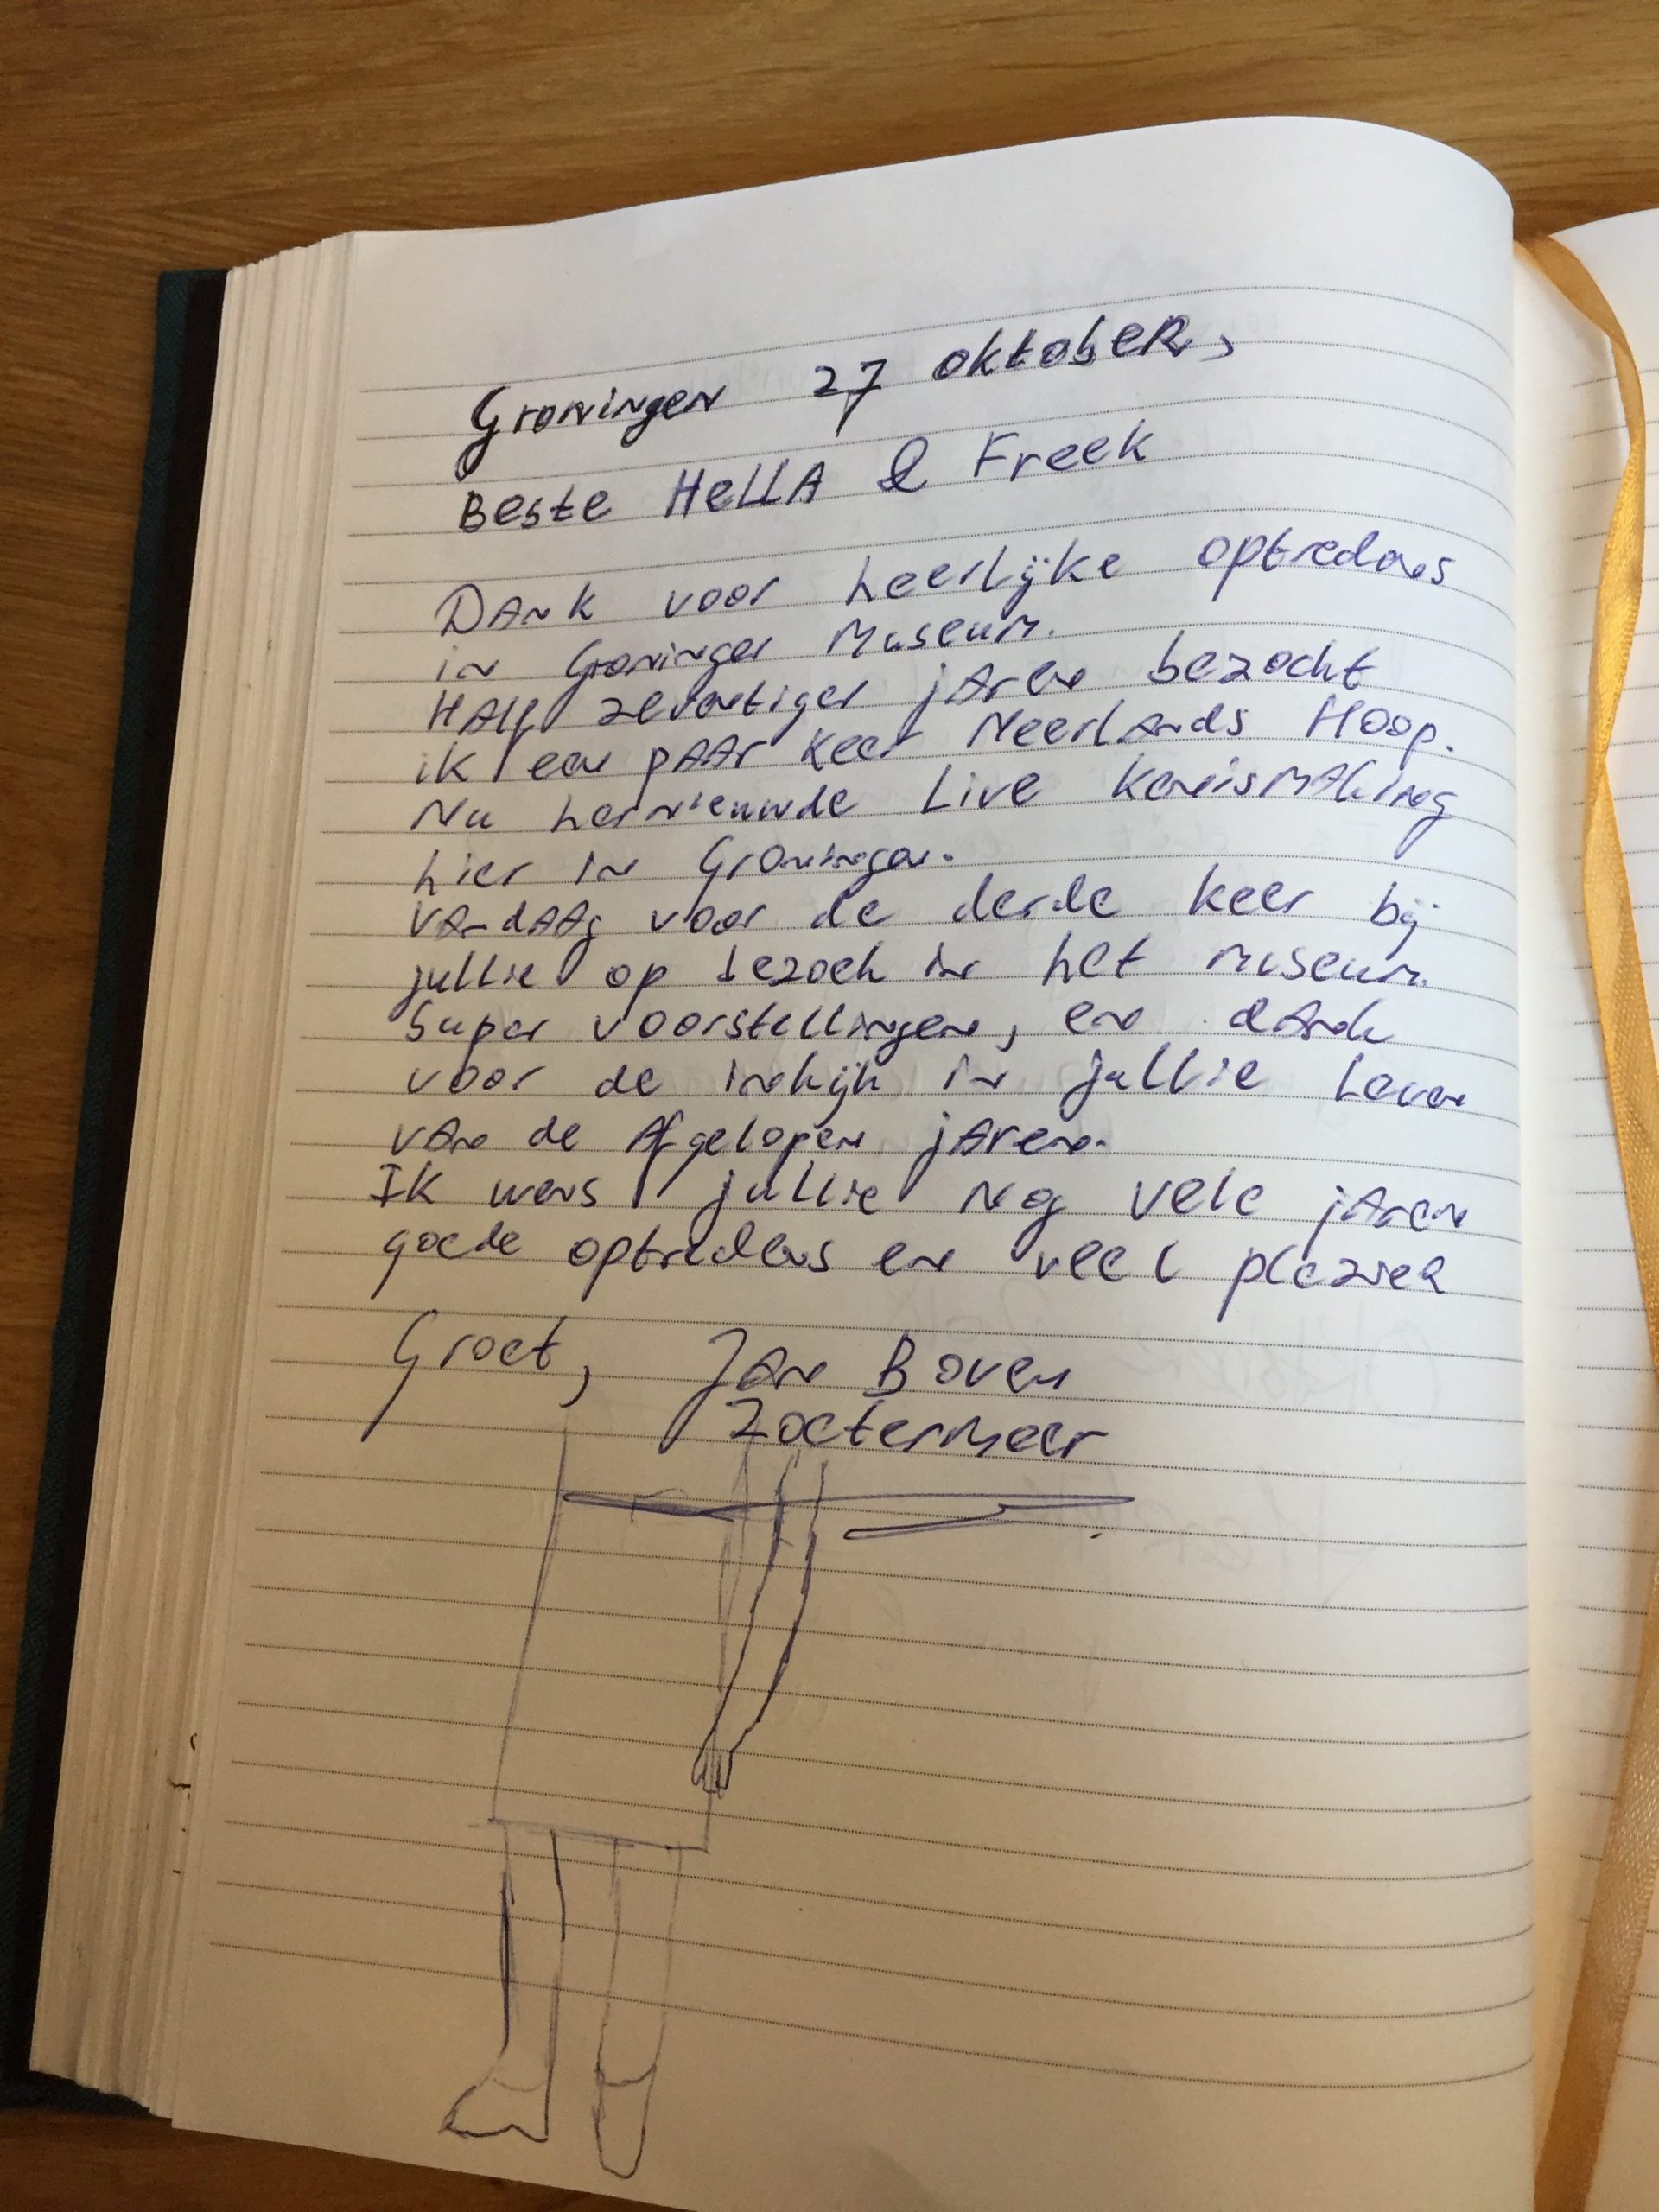 Groningen 27 oktober,
Beste Hella & Freek
Dank voor heerlijke optredens
in Groninger Museum.
Half zeventiger jaren bezocht
ik een paar keer Neerlands Hoop.
Nu hernieuwde Live kennismaking
hier in Groningen.
Vandaag voor de derde keer bij
jullie op bezoek in het museum.
Super voorstellingen, en dank
voor de inkijk in jullie leven
van de afgelopen jaren.
Ik wens jullie nog vele jaren
goede optredens en veel plezier
Groet, Jan Boven
Zoetermeer